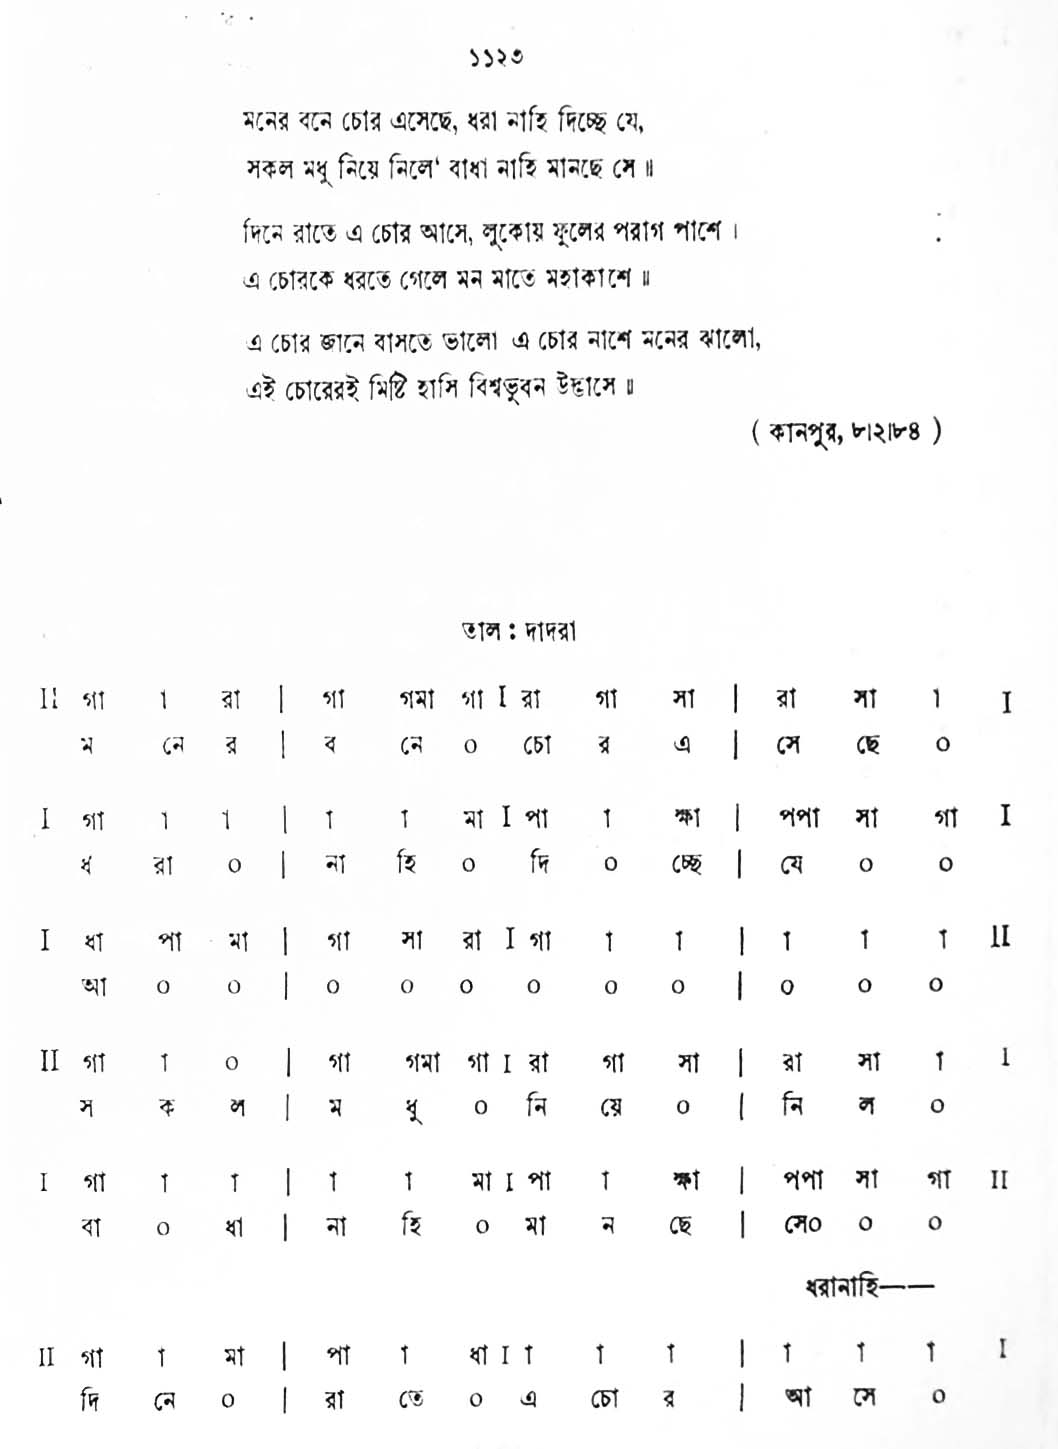 ১১২৩
মনের বনে চোর এসেছে, ধরা নাহি দিচ্ছে যে,
সকল মধু নিয়ে নিলে‘ বাধা নাহি মানছে সে ॥
দিনে রাতে এ চোর আসে, লুকোয় ফুলের পরাগ পাশে ।
এ চোরকে ধরতে গেলে মন মাতে মহাকাশে ॥
এ চোর জানে বাসতে ভালো এ চোর নাশে মনের ঝালো,
এই চোরেরই মিষ্টি হাসি বিশ্বভুবন উদ্ভাসে ॥
( কানপুর, ৮।২।৮৪ )
তাল : দাদরা
II গা া রা | গা গমা গা I রা গা সা | রা সা া I
ম নে র | ব নে ০ চো র এ | সে ছে ০
I গা া া | া া মা I পা া ক্ষা | পপা সা গা I
ধ রা ০ | না হি ০ দি ০ চ্ছে | যে ০ ০
I ধা পা মা | গা সা রা I গা া া | া া া II
আ ০ ০ | ০ ০ ০ ০ ০ ০ | ০ ০ ০
II গা া ০ | গা গমা গা I রা গা সা | রা সা া I
স ক ল | ম ধু ০ নি য়ে ০ | নি ল ০
I গা া া | া া মা I পা া ক্ষা | পপা সা গা II
বা ০ ধা | না হি ০ মা ন ছে | সে০ ০ ০
ধরানাহি——
II গা া মা | পা া ধা I া া া | া া া I
দি নে ০ | রা তে ০ এ চো র | আ সে ০